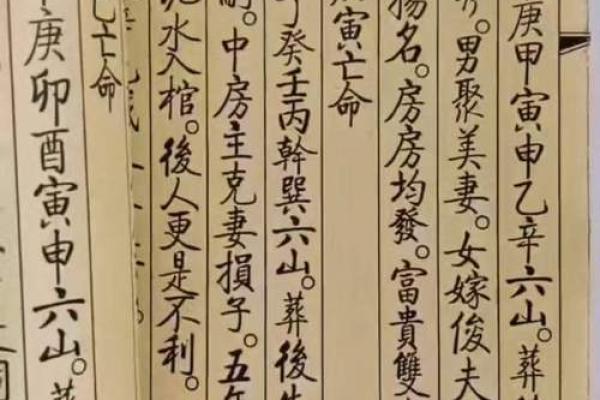 庚甲寅申乙辛六山。葬
男聚美妻。女嫁俊夫
揚名。房房均發。富貴雙
寅亡命
癸壬丙幹巽六山。葬後
中房主克妻損子。五年
水入棺。後人更是不利。
亡命
庚卯酉寅申六山。葬